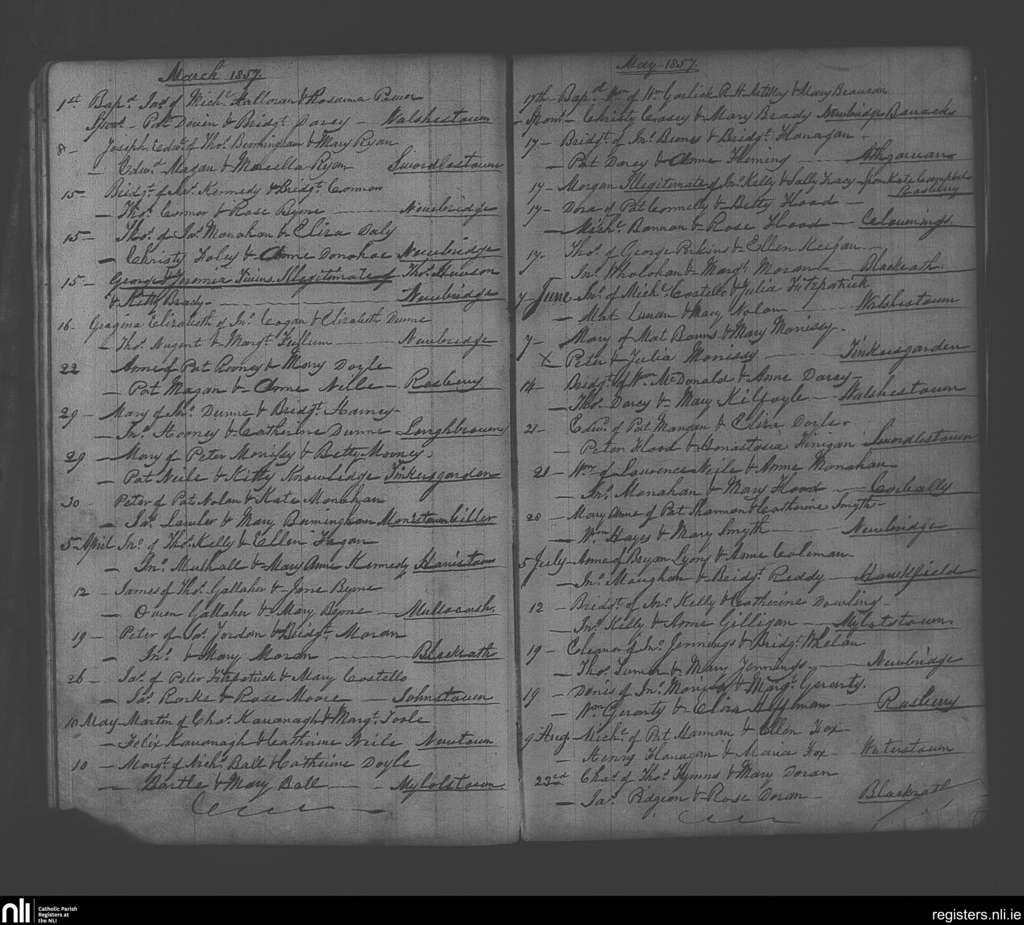 March 1857.
1st Bapd. Jas. of Michl. Halloran & Rosanna Power
Spors. Pat Dowin & Bridgt. Darcy - Walshestown
8 - Joseph Edwd. of Thos. Birmingham & Mary Ryan
- Edwd. Magan & Marcella Ryan Swordlestown
15 - Bridgt. of Kennedy & Bridgt. Connor
- Thos. Connor & Rose Byrne Newbridge
15 - Thos. of Jas. Monahan & Eliza Daly
- Christy Foley & Anne Donahoe Newbridge
15 - George & Twins Illegitimate of Thos. Hewson
& Kitty Brady. Newbridge
16 - Georgina Elizabeth of Jno. Cogan & Elizabeth Dunne
- Thos. Nugent & Margt. Newbridge
22 Anne of Pat Rooney & Mary Doyle
- Pat Magan & Anne Neile - Rosberry
29 - Mary of Jno. Dunne & Bridgt. Harney
- Jno. Rooney & Catherine Dunne Loughbrown
29 - Mary of Peter Morrissy & Betty Mooney.
- Pat Neile & Kitty Knowledge Tinkersgarden
30 Peter of Pat Nolan & Kate Monahan
- Jas. Lawler & Mary Birmingham
5 - April Jno. of Thos. Kelly & Ellen Fagan
- Jno. Mulhall & Mary Anne Kennedy Haristown
12 James of Thos. Gallaher & Jane Byrne
- Owen Gallaher & Mary Byrne - Mullacash
19 - Peter of Jas. Jordan & Bridgt. Moran
- Jno. & Mary Moran - Blackrath
26 - Jas. of Peter Fitzpatrick & Mary Costello
- Jas. Rorke & Rose Moore - Johnstown
10 May Martin of Chas. Kavanagh & Margt. Toole
- Felix Kavanagh & Catherine Neile Newtown
10 - Margt. of Michl. Ball & Catherine Doyle
- Bartle & Mary Ball - Mylotstown
May 1857.
17th - Bapd. Wm. of Wm. Garlick R.H. Artillry & Mary Branson
- Spons. - Christy Casey & Mary Brady Newbridge Barracks
17 - Bridgt. of Jno. Byrne & Bridgt. Hanagan
- Pat Darcy & Anne Fleming - Athgarvan
17 - Morgan Illegitimate of Jno. Kelly & Sally Tracy - spon Kate Campbell
Rosberry
17 - Dora of Pat Connelly & Betty Hood
- Michl. Bannan & Rose Hood - Celounings
17. Thos. of George Perkins & Ellen Keegan.
- Jno. Wholohan & Margt. Moran - Blackrath.
7 - June Jno. of Michl. Costello & Julia Fitzpatrick
- Mat & Mary Nolan - Walshestown
7 - Mary of Mat & Mary Morrissy.
X Peter & Julia Morrissy Tinkersgarden
14 Bridgt. of Wm. McDonald & Anne Darcy -
- Thos. Darcy & Mary Kilfoyle - Walshestown
21 - Edwd. of Pat Mangan & Eliza Doyle.
- Peter Hood & Honastasia Finigan Swordlestown
21 - Wm. of Lawrence Neile & Anne Monahan
- Jno. Monahan & Mary Hood - Corbally
28 - Mary Anne of Pat Hannan & Catherine Smyth
- Wm. Hayes & Mary Smyth - Newbridge
5 July - Anne of Bryan Lyons & Anne Coleman
- Jno. Maughan & Bridgt. Reddy - Hawkfield
12 - Bridgt. of Jno. Kelly & Catherine Dowling -
- Jno. Kelly & Anne Gilligan - Mylotstown.
19 - Eleanor of Jno. Jennings & Bridgt. Whelan
- Thos. & Mary Jennings - Newbridge
19 - Denis of Jno. & Margt. Gerarty.
- Wm. Gerarty & Heffernan - Rosberry
9 Aug Michl. of Pat Hannan & Ellen Fox
- Henry Flanagan & Maria Fox - Waterstown
23rd Chas. of Thos. Hymns & Mary Doran
- Jas. Pidgeon & Rose Doran - Blackrath
nli Catholic Parish
Registers at
the NLI
registers.nli.ie